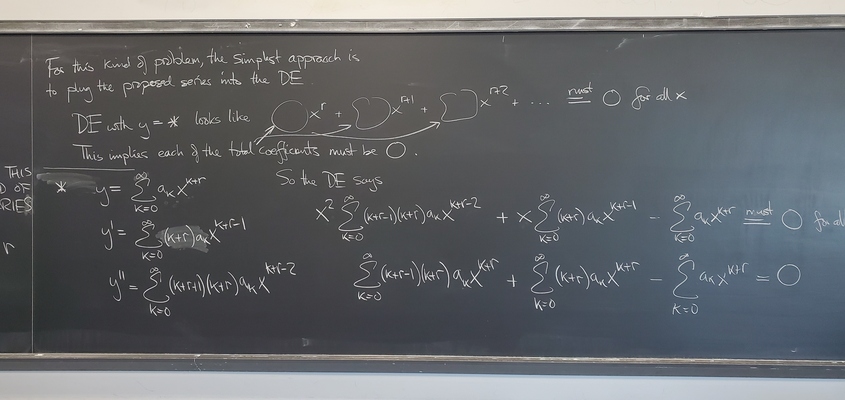 For this kind of problem, the simplest approach is
to plug the proposed series into the DE.
DE with y = * looks like ◯x^r + ◯x^{r+1} + ◯x^{r+2} + ... must = 0 for all x
This implies each of the total coefficients must be 0.
THIS
OF
* y = ∑_{k=0}^∞ a_k x^{k+r}
So the DE says
r
y' = ∑_{k=0}^∞ (k+r) a_k x^{k+r-1}
x^2 ∑_{k=0}^∞ (k+r-1)(k+r) a_k x^{k+r-2} + x ∑_{k=0}^∞ (k+r) a_k x^{k+r-1} - ∑_{k=0}^∞ a_k x^{k+r} must = 0 for al
y'' = ∑_{k=0}^∞ (k+r-1)(k+r) a_k x^{k+r-2}
∑_{k=0}^∞ (k+r-1)(k+r) a_k x^{k+r} + ∑_{k=0}^∞ (k+r) a_k x^{k+r} - ∑_{k=0}^∞ a_k x^{k+r} = 0